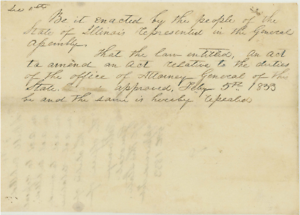 Sec 1st
Be it enacted by the people of the
State of Illinois represented in the General
Assembly,
That the law entitled, An act
to amend an Act relative to the duties
of the office of Attorney General of the
State approved, Feby 5th 1833
be and the same is hereby repealed